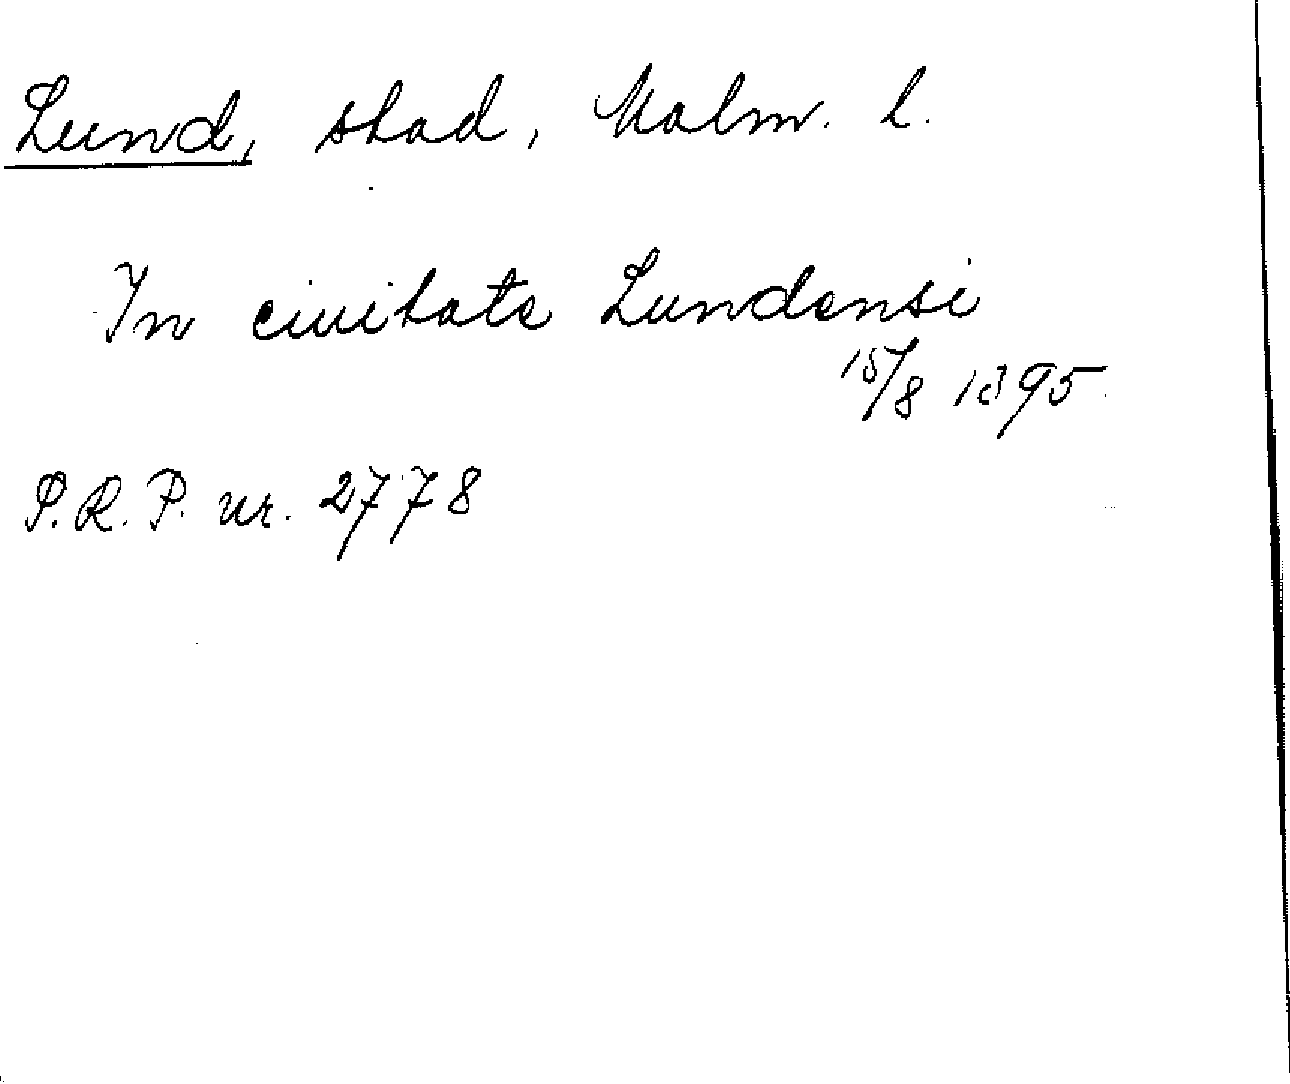 Lund, stad, Malm. l.
In ciuitate Lundensi
15/8 1395
S.R.P. nr. 2778